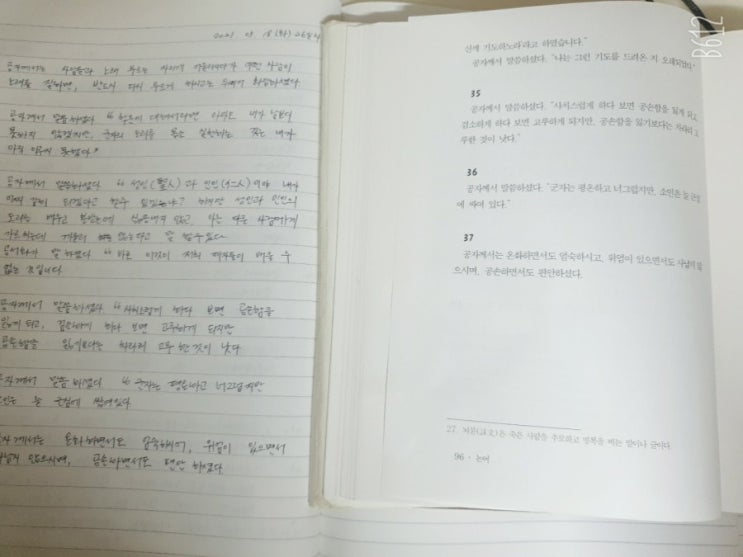 2021
공자께서는 사람들과 노래 부르는 자리에
노래를 잘하면, 반드시 다시 부르게 하시고는 뒤이어 화답하셨다
공자께서 말씀하셨다 "학문에 대해서라면 아마도 내가 남보다
못하지 않겠지만, 군자의 도리를 몸소 실천하는 것은 내가
아직 이루지 못했다."
공자께서 말씀하셨다 "성인(聖人)과 인인(仁人)이야 내가
어찌 감히 되겠다고 할 수 있겠느냐? 하지만 성인과 인인의
도리를 배우고 본받는데 싫증내지 않고, 이를 다른 사람에게
가르치는데 게을리 하지 않는다고 말 할 수 있다
공서화가 말하였다 "바로 이것이 저희 제자들이 배울 수
없는 것입니다
공자께서 말씀하셨다 "사치스럽게 하다 보면 공손함을
잃게 되고, 검소하게 하다 보면 고루하게 되지만
공손함을 잃기보다는 차라리 고루한 것이 낫다
공자께서 말씀하셨다 "군자는 평온하고 너그럽지만
소인은 늘 근심에 싸여있다
공자께서는 온화하면서도 엄숙하시며, 위엄이 있으면서
사납지 않으시며, 공손하면서도 편안하셨다
신께 기도하노라'라고 하였습니다."
공자께서 말씀하셨다. "나는 그런 기도를 드려온 지 오래되었다."
35
공자께서 말씀하셨다. "사치스럽게 하다 보면 공손함을 잃게 되고,
검소하게 하다 보면 고루하게 되지만, 공손함을 잃기보다는 차라리 고
루한 것이 낫다."
36
공자께서 말씀하셨다. "군자는 평온하고 너그럽지만, 소인은 늘 근심
에 싸여 있다."
37
공자께서는 온화하면서도 엄숙하시고, 위엄이 있으면서도 사납지 않
으시며, 공손하면서도 편안하셨다.
27. 뇌문(誄文)은 죽은 사람을 추모하고 명복을 비는 말이나 글이다.
96 · 논어
B612